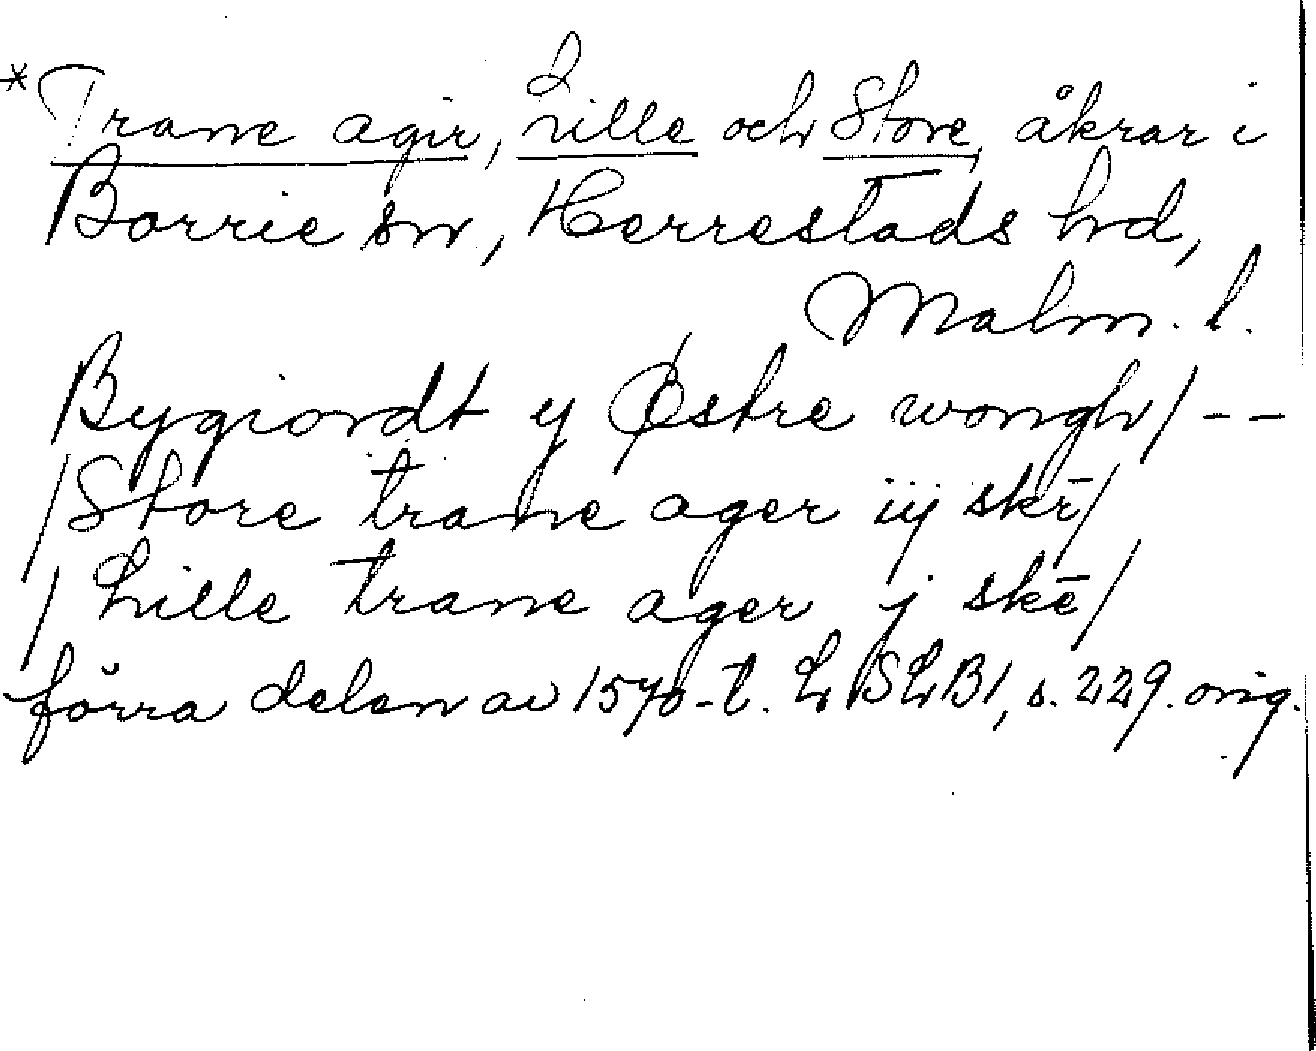 *Trane agir, Lille och Store, åkrar i
Borrie sn, Herrestads hd,
Malm. l.
Bygiordt y Østre wongh/--
/Store trane ager iij skē/
/Lille trane ager j skē/
förra delen av 1570-t. LSLB1, s. 229. orig.